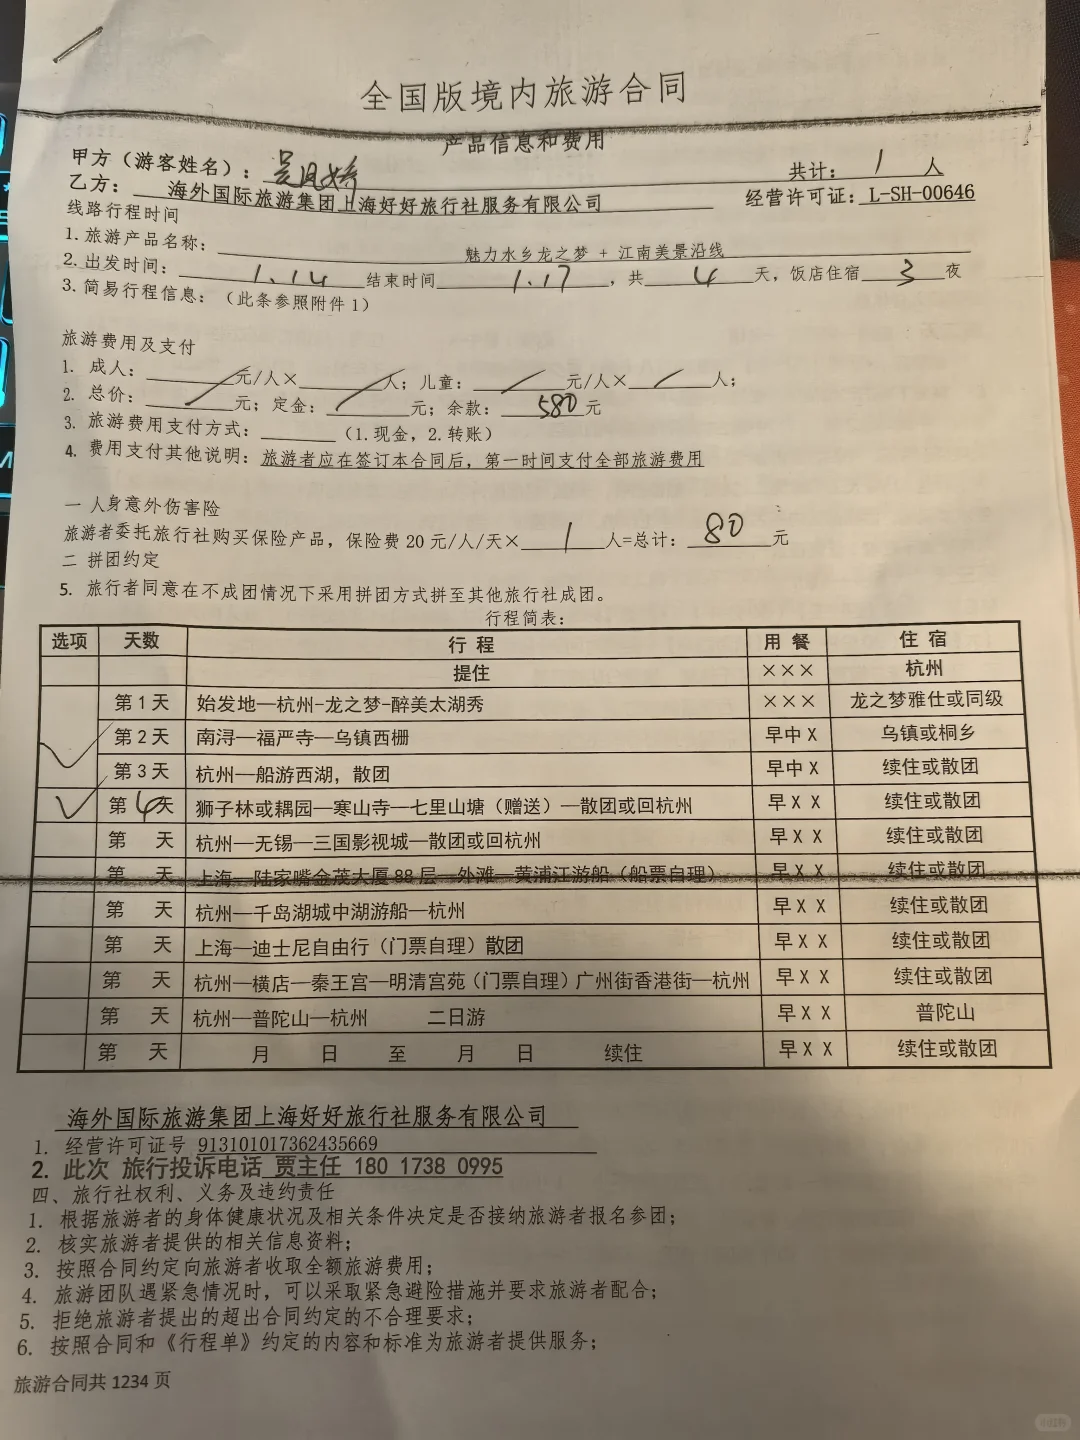 全国版境内旅游合同
产品信息和费用
甲方（游客姓名）： 共计：1人
乙方：海外国际旅游集团上海好好旅行社服务有限公司 经营许可证：L-SH-00646
线路行程时间
1.旅游产品名称：魅力水乡龙之梦 + 江南美景沿线
2.出发时间：1.14 结束时间 1.17，共 4 天，饭店住宿 3 夜
3.简易行程信息：（此条参照附件1）
旅游费用及支付
1. 成人：/元/人×/人；儿童：/元/人×/人；
2. 总价：/元；定金：/元；余款：580元
3. 旅游费用支付方式：______（1.现金，2.转账）
4. 费用支付其他说明：旅游者应在签订本合同后，第一时间支付全部旅游费用
一 人身意外伤害险
旅游者委托旅行社购买保险产品，保险费20元/人/天×1人=总计：80元
二 拼团约定
5. 旅行者同意在不成团情况下采用拼团方式拼至其他旅行社成团。
行程简表：
选项 天数 行 程 用 餐 住 宿
提住 ××× 杭州
第1天 始发地—杭州-龙之梦-醉美太湖秀 ××× 龙之梦雅仕或同级
第2天 南浔—福严寺—乌镇西栅 早中X 乌镇或桐乡
第3天 杭州—船游西湖，散团 早中X 续住或散团
第4天 狮子林或耦园—寒山寺—七里山塘（赠送）—散团或回杭州 早X X 续住或散团
第 天 杭州—无锡—三国影视城—散团或回杭州 早X X 续住或散团
第 天 上海—陆家嘴金茂大厦88层—外滩—黄浦江游船（船票自理） 早X X 续住或散团
第 天 杭州—千岛湖城中湖游船—杭州 早X X 续住或散团
第 天 上海—迪士尼自由行（门票自理）散团 早X X 续住或散团
第 天 杭州—横店—秦王宫—明清宫苑（门票自理）广州街香港街—杭州 早X X 续住或散团
第 天 杭州—普陀山—杭州 二日游 早X X 普陀山
第 天 月 日 至 月 日 续住 早X X 续住或散团
海外国际旅游集团上海好好旅行社服务有限公司
1. 经营许可证号 913101017362435669
2. 此次 旅行投诉电话 贾主任 180 1738 0995
四、旅行社权利、义务及违约责任
1. 根据旅游者的身体健康状况及相关条件决定是否接纳旅游者报名参团；
2. 核实旅游者提供的相关信息资料；
3. 按照合同约定向旅游者收取全额旅游费用；
4. 旅游团队遇紧急情况时，可以采取紧急避险措施并要求旅游者配合；
5. 拒绝旅游者提出的超出合同约定的不合理要求；
6. 按照合同和《行程单》约定的内容和标准为旅游者提供服务；
旅游合同共1234页
小红书